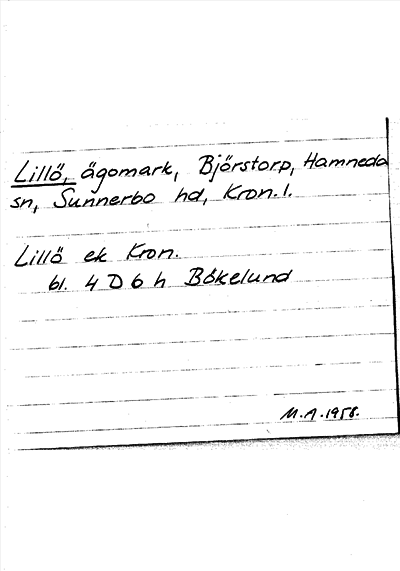 Lillö, ägomark, Björstorp, Hamneda
sn, Sunnerbo hd, Kron. l.
Lillö ek Kron.
bl. 4 D 6 h Bökelund
M.A. 1958.